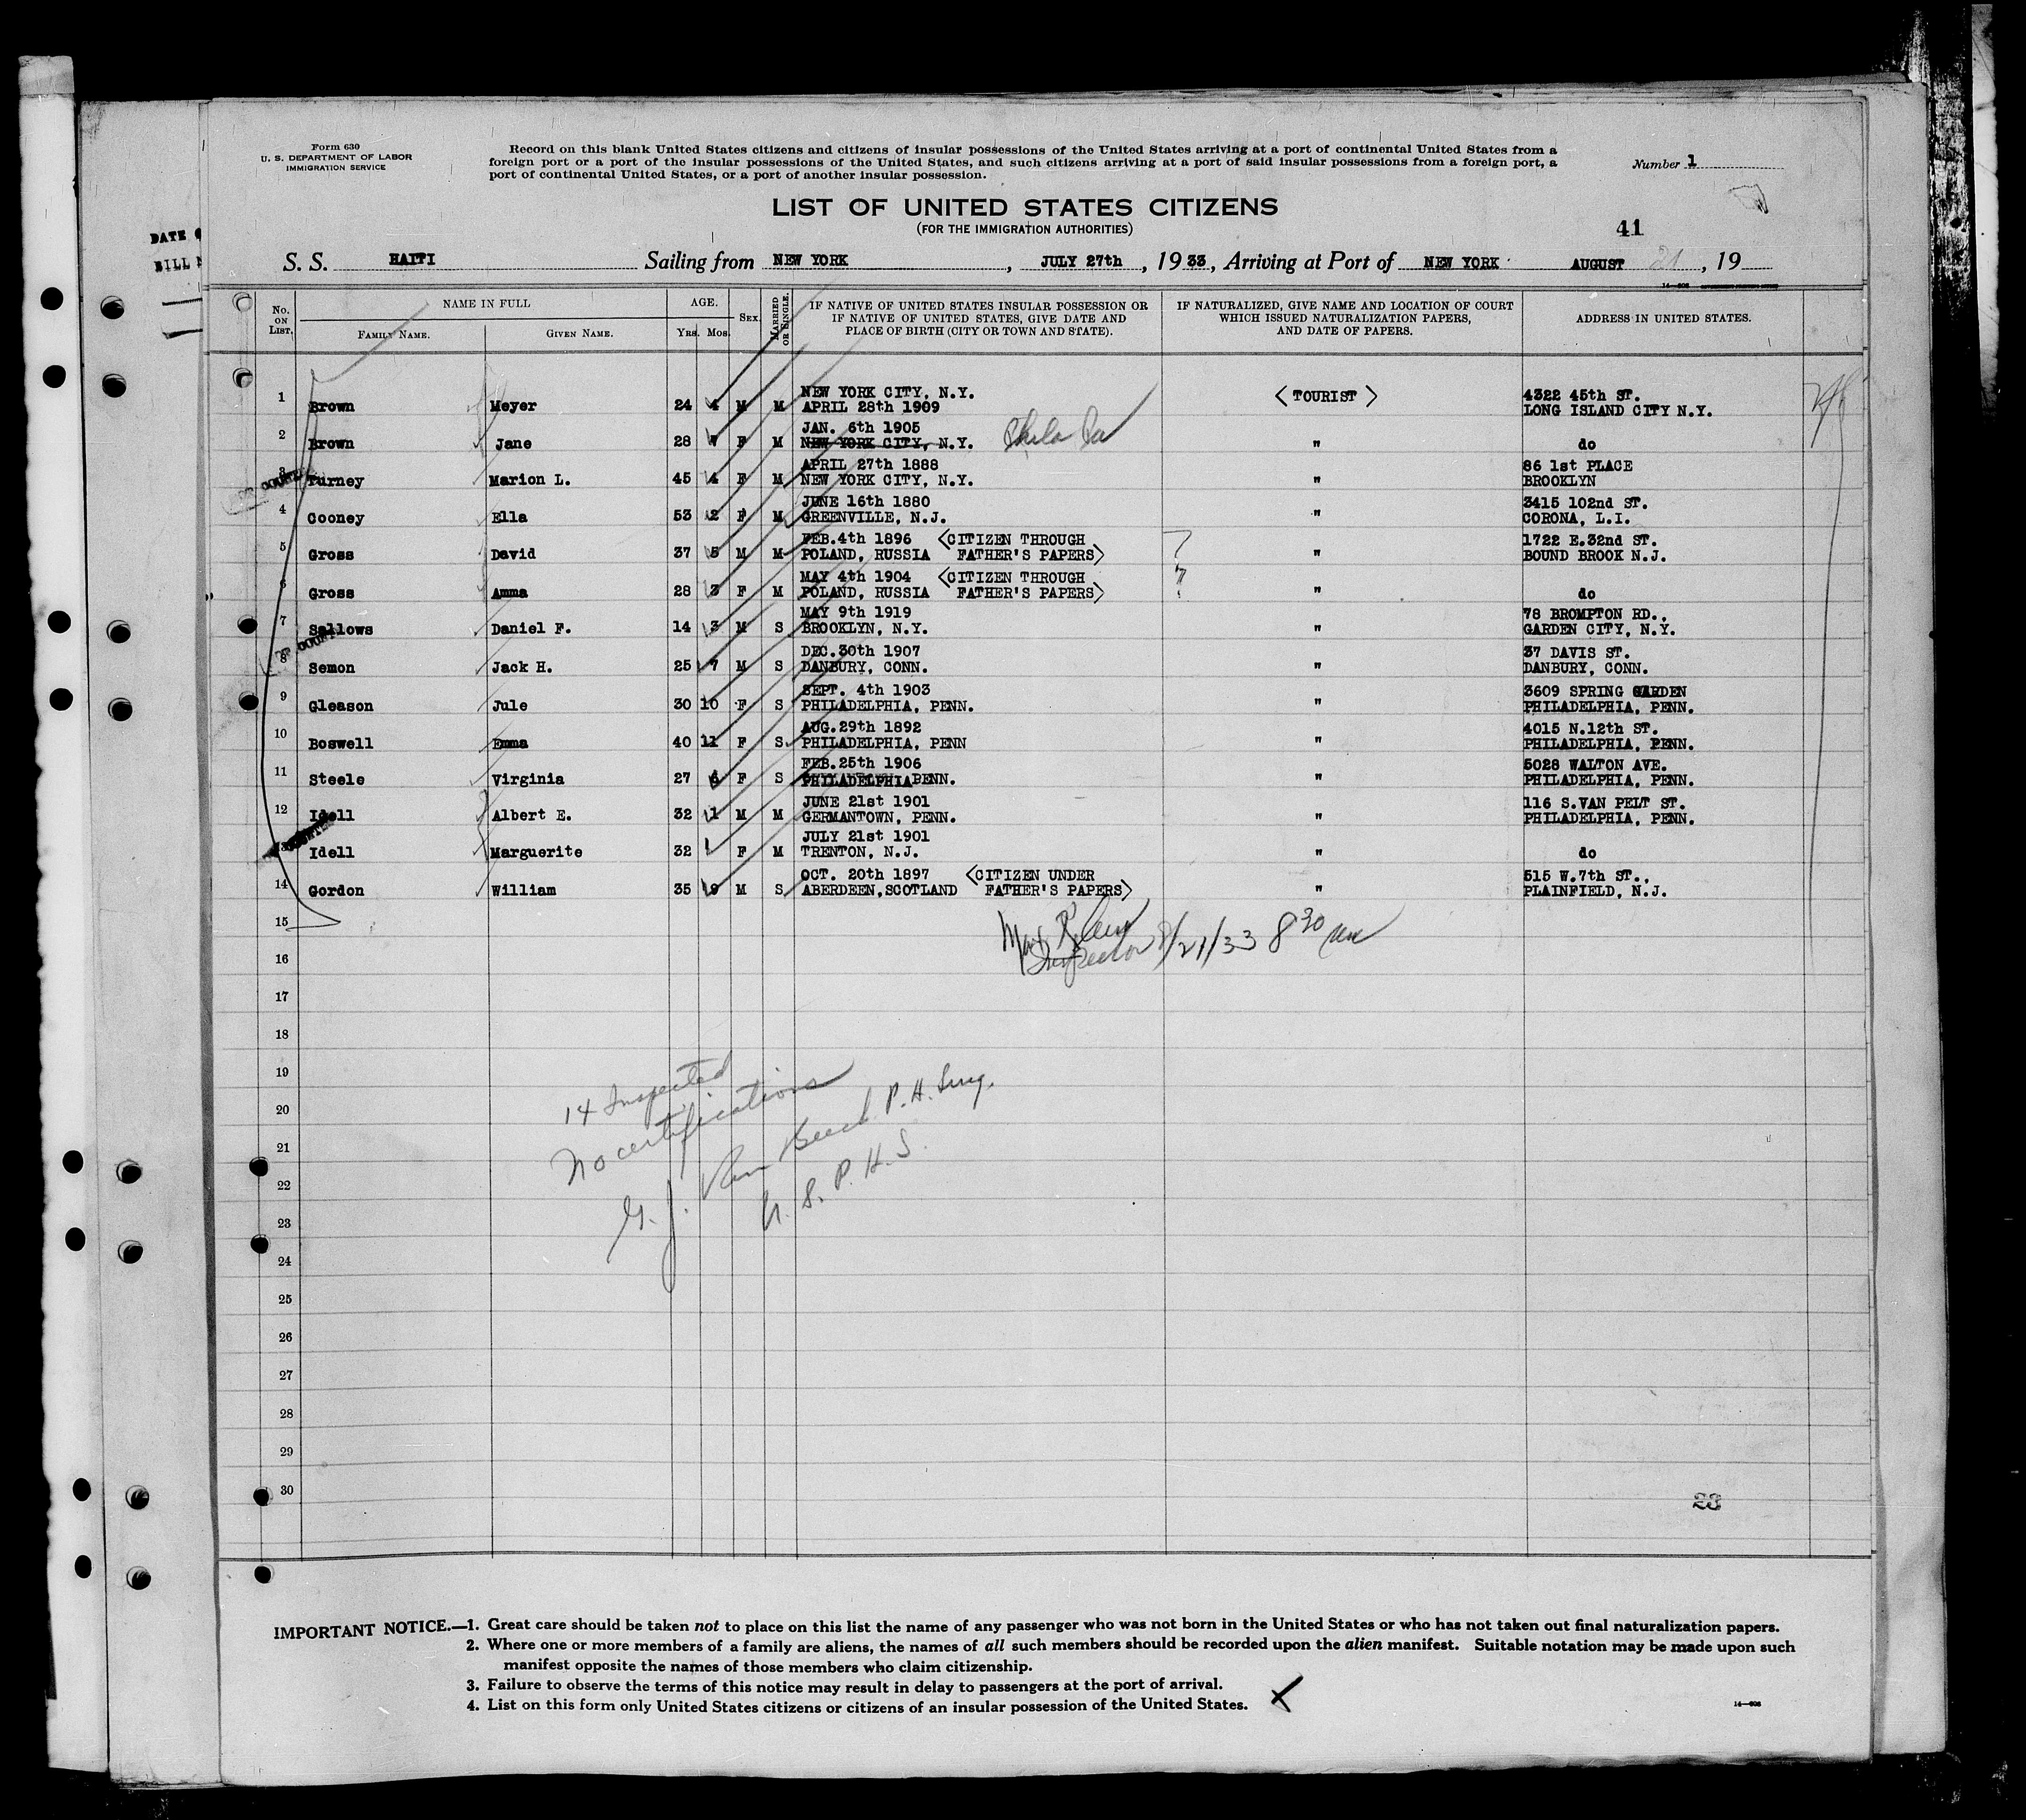 Form 630
U. S. DEPARTMENT OF LABOR
IMMIGRATION SERVICE
Record on this blank United States citizens and citizens of insular possessions of the United States arriving at a port of continental United States from a
foreign port or a port of the insular possessions of the United States, and such citizens arriving at a port of said insular possessions from a foreign port, a
port of continental United States, or a port of another insular possession.
Number 1
LIST OF UNITED STATES CITIZENS
(FOR THE IMMIGRATION AUTHORITIES)
41
DATE
BILL
S. S. HAITI Sailing from NEW YORK, JULY 27th, 1933, Arriving at Port of NEW YORK AUGUST 21, 19
No. ON LIST. NAME IN FULL FAMILY NAME. GIVEN NAME. AGE. Yrs. Mos. SEX. MARRIED OR SINGLE. IF NATIVE OF UNITED STATES INSULAR POSSESSION OR IF NATIVE OF UNITED STATES, GIVE DATE AND PLACE OF BIRTH (CITY OR TOWN AND STATE). IF NATURALIZED, GIVE NAME AND LOCATION OF COURT WHICH ISSUED NATURALIZATION PAPERS, AND DATE OF PAPERS. ADDRESS IN UNITED STATES.
1 Brown Meyer 24 4 M M NEW YORK CITY, N.Y. APRIL 28th 1909 <TOURIST> 4322 45th ST. LONG ISLAND CITY N.Y.
2 Brown Jane 28 7 F M JAN. 6th 1905 NEW YORK CITY, N.Y. Phila Pa " do
3 Turney Marion L. 45 4 F M APRIL 27th 1888 NEW YORK CITY, N.Y. " 86 1st PLACE BROOKLYN
4 Cooney Ella 53 2 F M JUNE 16th 1880 GREENVILLE, N.J. " 3415 102nd ST. CORONA, L.I.
5 Gross David 37 5 M M FEB.4th 1896 POLAND, RUSSIA <CITIZEN THROUGH FATHER'S PAPERS> ? " 1722 E.32nd ST. BOUND BROOK N.J.
6 Gross Amma 28 3 F M MAY 4th 1904 POLAND, RUSSIA <CITIZEN THROUGH FATHER'S PAPERS> ? " do
7 Sallows Daniel F. 14 3 M S MAY 9th 1919 BROOKLYN, N.Y. " 78 BROMPTON RD., GARDEN CITY, N.Y.
8 Semon Jack H. 25 7 M S DEC.30th 1907 DANBURY, CONN. " 37 DAVIS ST. DANBURY, CONN.
9 Gleason Jule 30 10 F S SEPT. 4th 1903 PHILADELPHIA, PENN. " 3609 SPRING GARDEN PHILADELPHIA, PENN.
10 Boswell Emma 40 11 F S AUG.29th 1892 PHILADELPHIA, PENN " 4015 N.12th ST. PHILADELPHIA, PENN.
11 Steele Virginia 27 6 F S FEB.25th 1906 PHILADELPHIA PENN. " 5028 WALTON AVE. PHILADELPHIA, PENN.
12 Idell Albert E. 32 1 M M JUNE 21st 1901 GERMANTOWN, PENN. " 116 S.VAN PELT ST. PHILADELPHIA, PENN.
13 Idell Marguerite 32 F M JULY 21st 1901 TRENTON, N.J. " do
14 Gordon William 35 9 M S OCT. 20th 1897 ABERDEEN,SCOTLAND <CITIZEN UNDER FATHER'S PAPERS> " 515 W.7th ST., PLAINFIELD, N.J.
15
Inspector 8/21/33 8 30 am
16
17
18
19
14 Inspected
20
No certifications
21
P. H. Surg.
22
U. S. P. H. S.
23
24
25
26
27
28
29
30
23
IMPORTANT NOTICE.—1. Great care should be taken not to place on this list the name of any passenger who was not born in the United States or who has not taken out final naturalization papers.
2. Where one or more members of a family are aliens, the names of all such members should be recorded upon the alien manifest. Suitable notation may be made upon such
manifest opposite the names of those members who claim citizenship.
3. Failure to observe the terms of this notice may result in delay to passengers at the port of arrival.
4. List on this form only United States citizens or citizens of an insular possession of the United States.